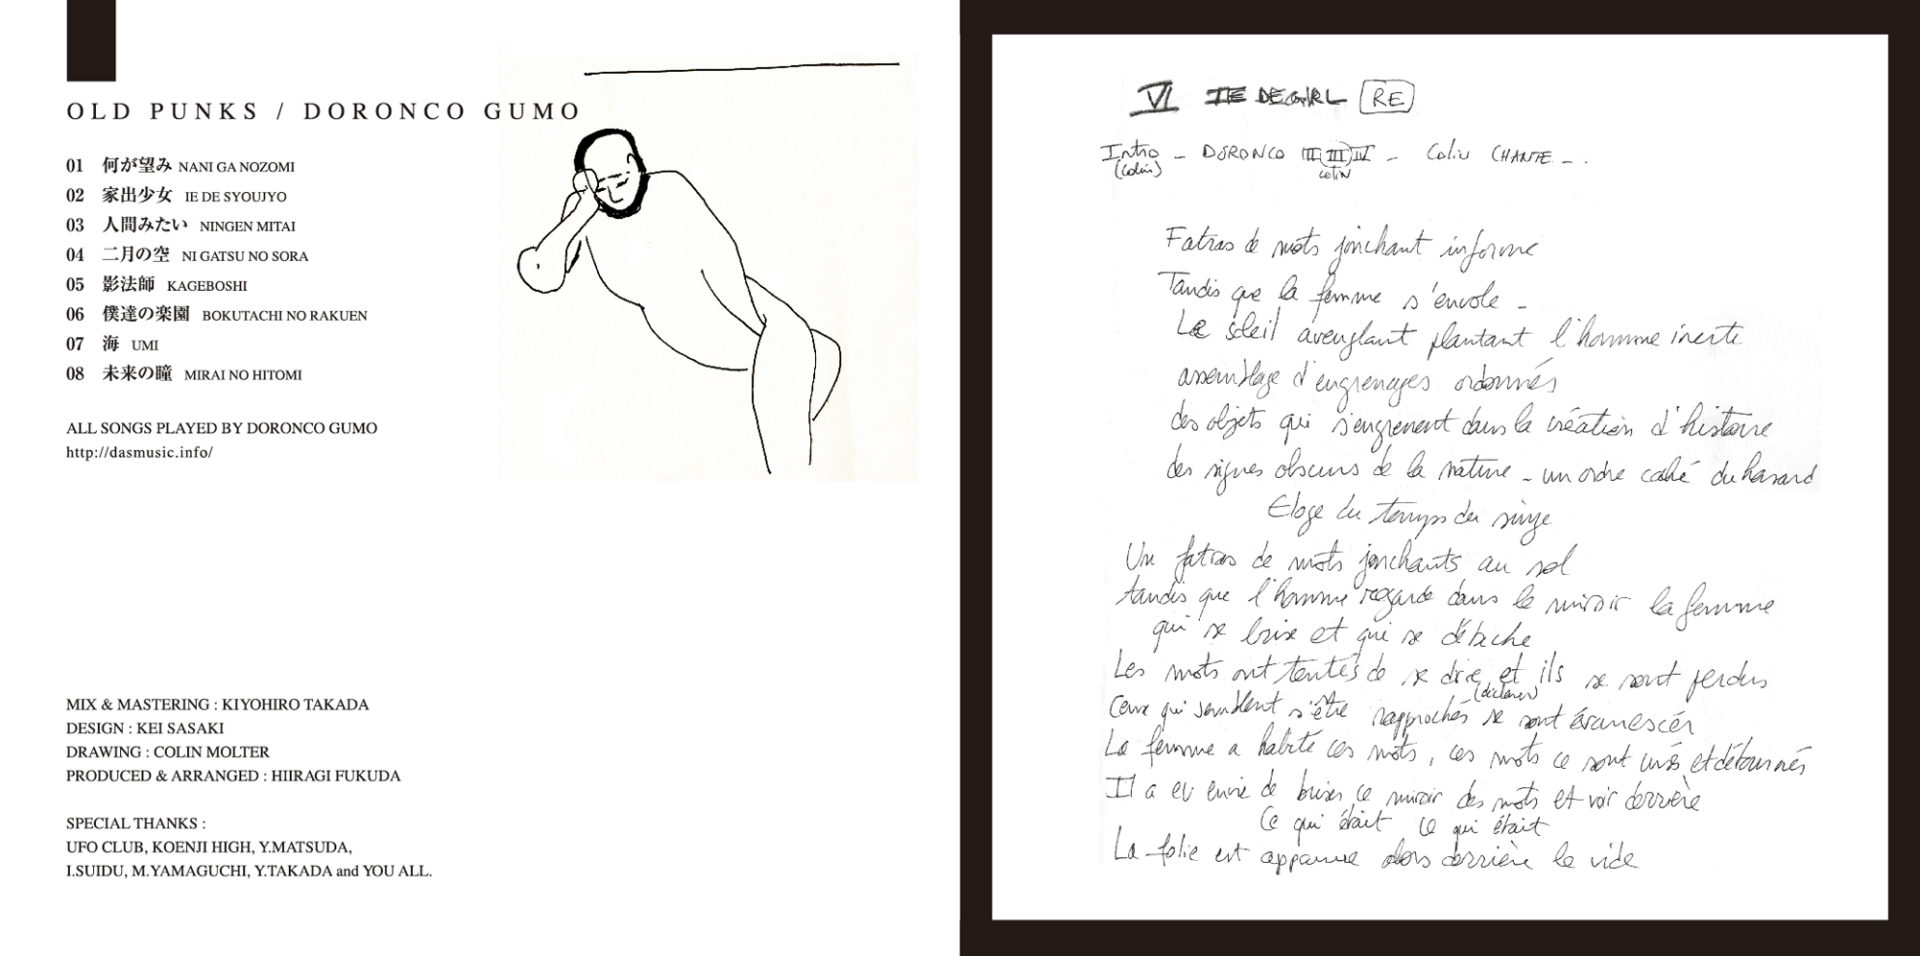 OLD PUNKS / DORONCO GUMO
01 何が望み NANI GA NOZOMI
02 家出少女 IE DE SYOUJYO
03 人間みたい NINGEN MITAI
04 二月の空 NI GATSU NO SORA
05 影法師 KAGEBOSHI
06 僕達の楽園 BOKUTACHI NO RAKUEN
07 海 UMI
08 未来の瞳 MIRAI NO HITOMI
ALL SONGS PLAYED BY DORONCO GUMO
http://dasmusic.info/
MIX & MASTERING : KIYOHIRO TAKADA
DESIGN : KEI SASAKI
DRAWING : COLIN MOLTER
PRODUCED & ARRANGED : HIIRAGI FUKUDA
SPECIAL THANKS :
UFO CLUB, KOENJI HIGH, Y.MATSUDA,
I.SUIDU, M.YAMAGUCHI, Y.TAKADA and YOU ALL.
VI IE DE GIRL RE
Intro - DORONCO II III IV - Colin CHANTE - .
(Colin) colin
Fatras de mots jonchant informe
Tandis que la femme s'envole -
Le soleil aveuglant plantant l'homme inerte
assemblage d'engrenages ordonnés
des objets qui s'engrenent dans la création d'histoire
des signes obscurs de la nature - un ordre caché du hasard
Eloge du temps du singe
Un fatras de mots jonchants au sol
tandis que l'homme regarde dans le miroir la femme
qui se brise et qui se détache
Les mots ont tentés de se dire et ils se sont perdus
Ceux qui semblent s'être rapprochés se sont évanescér
La femme a habité ces mots, ces mots ce sont usés et détournés
Il a eu envie de briser ce miroir des mots et voir derrière
Ce qui était ce qui était
La folie est apparue alors derrière le vide